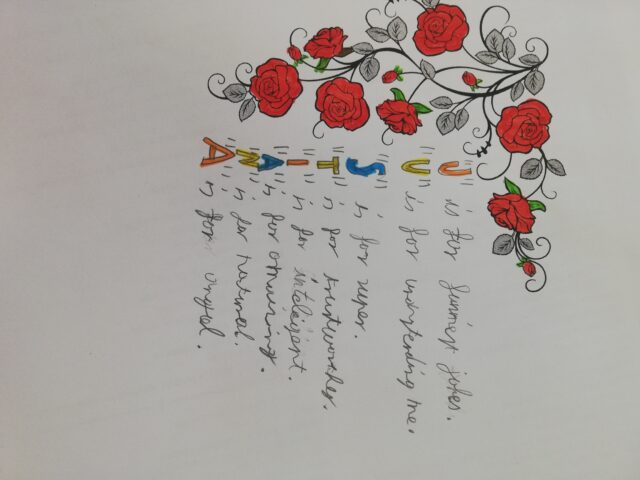 "J" is for jokes.
"U" is for me.
"S" is for super.
"T" is for
"I" is for inteligent.
"A" is for amaising.
"N" is for natural.
"A" is for angel.